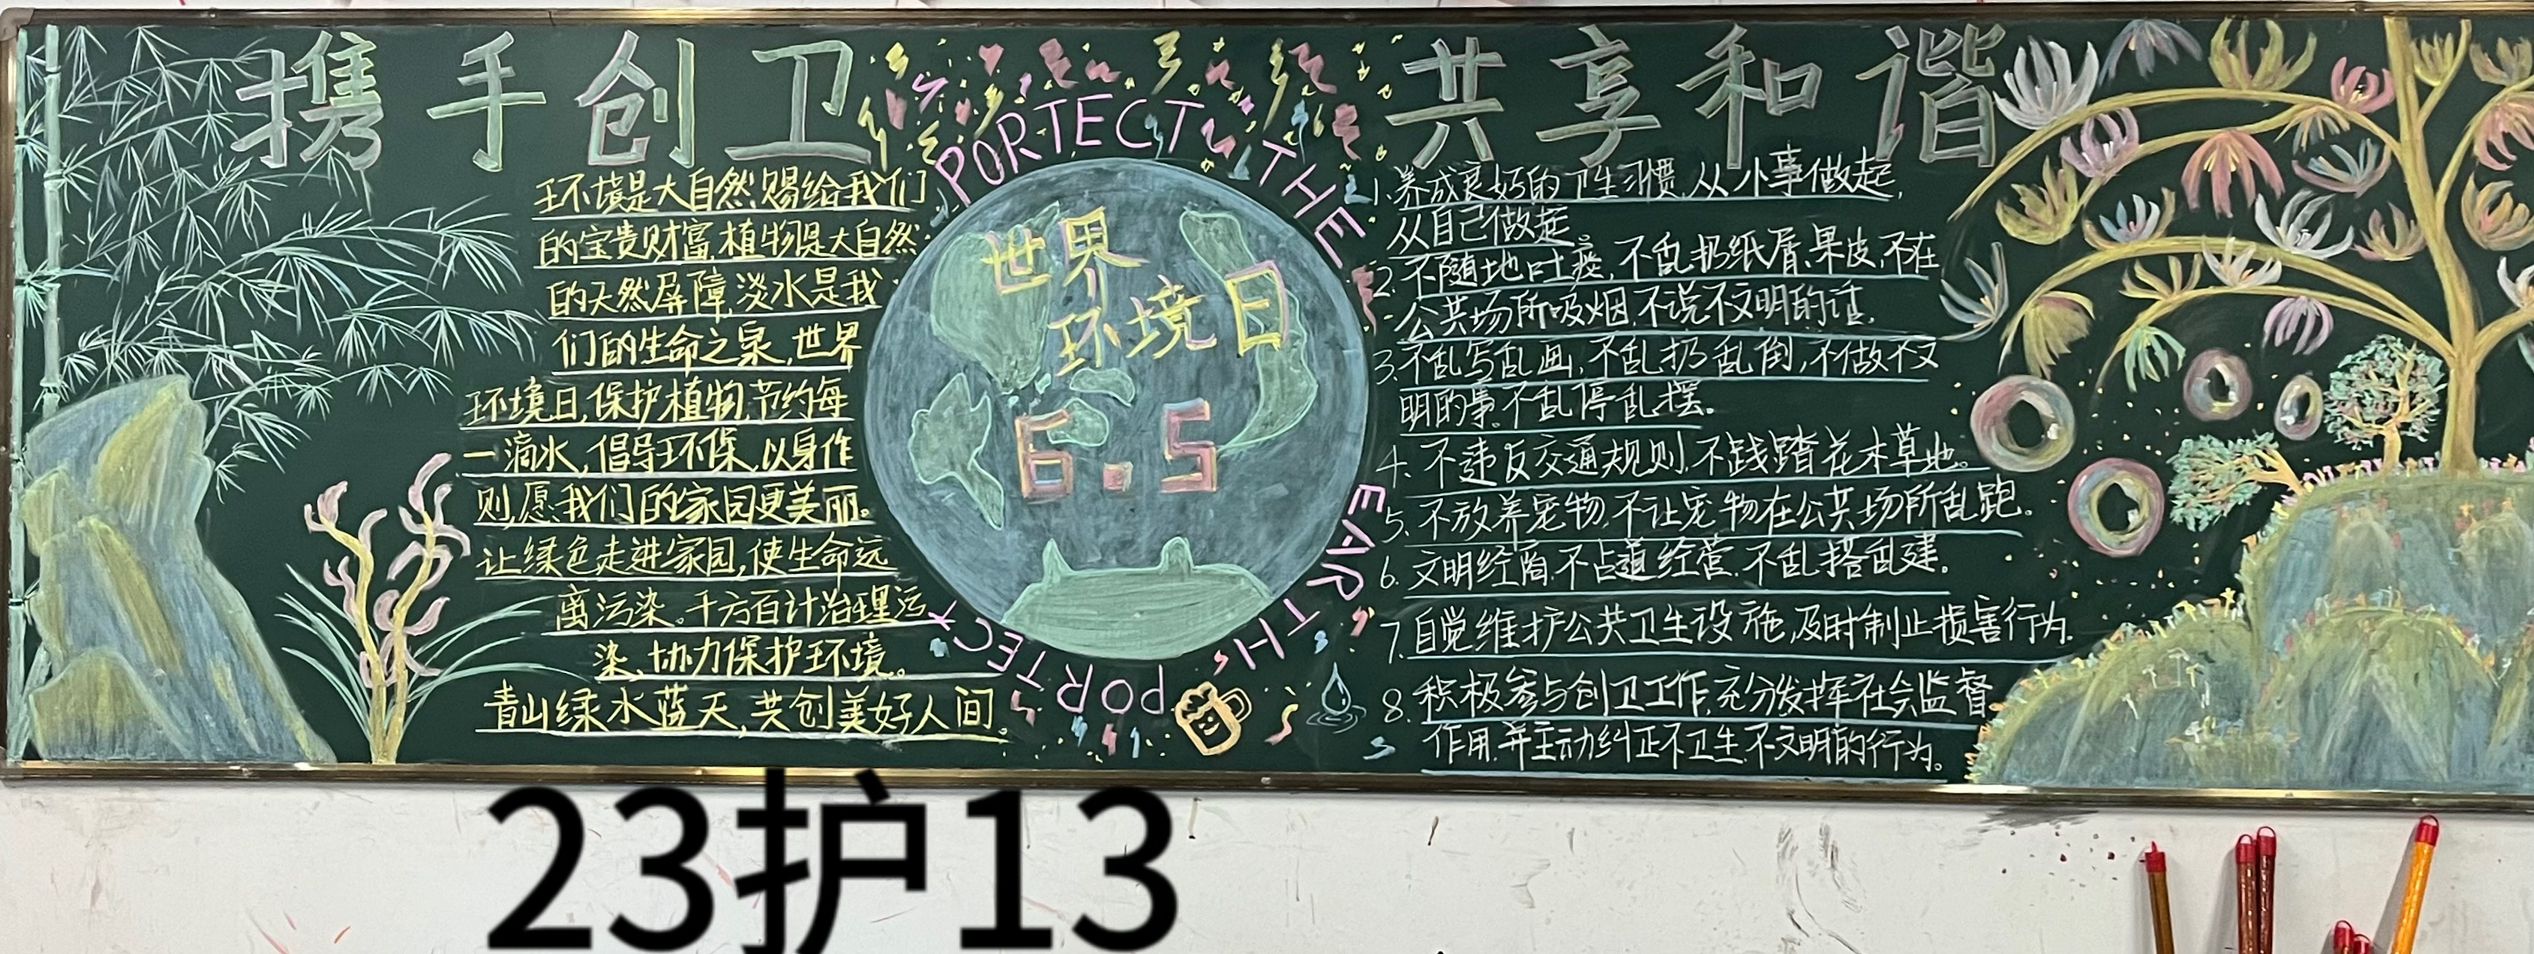 携手创卫
共享和谐
环境是大自然赐给我们
的宝贵财富,植物是大自然
的天然屏障,淡水是我
们的生命之泉,世界
环境日,保护植物,节约每
一滴水,倡导环保,以身作
则,愿我们的家园更美丽。
让绿色走进家园,使生命远
离污染。千方百计治理污
染,协力保护环境。
青山绿水蓝天,共创美好人间。
PORTECT THE
EARTH
PORTECT
世界
环境日
6.5
1.养成良好的卫生习惯,从小事做起,
从自己做起
2.不随地吐痰,不乱扔纸屑、果皮,不在
公共场所吸烟,不说不文明的话.
3.不乱写乱画,不乱扔乱倒,不做不文
明的事,不乱停乱摆。
4.不违反交通规则,不践踏花木草地。
5.不放养宠物,不让宠物在公共场所乱跑。
6.文明经商,不占道经营,不乱搭乱建。
7.自觉维护公共卫生设施,及时制止损害行为.
8.积极参与创卫工作,充分发挥社会监督
作用,并主动纠正不卫生不文明的行为。
23护13